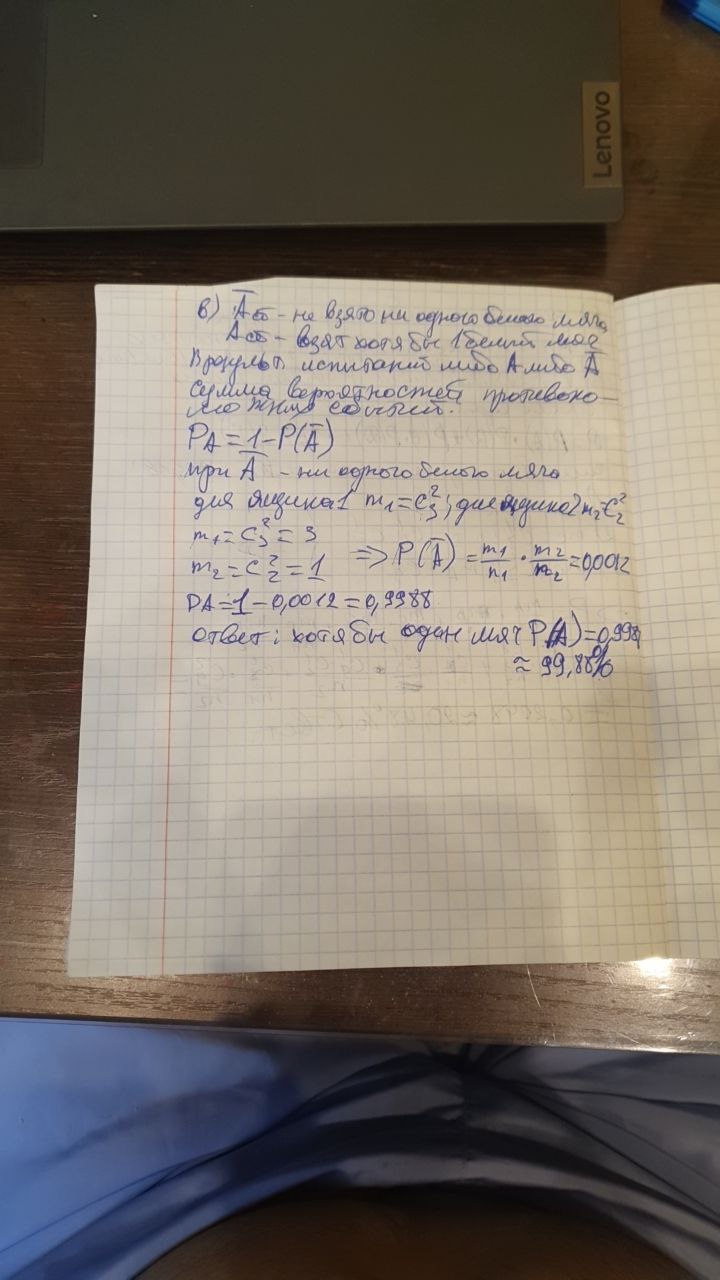 Lenovo
в) A̅ соб - не взято ни одного белого мяча
A соб - взят хотя бы 1 белый мяч
В результ. испытаний либо A либо A̅
Сумма вероятностей противопо-
ложных событий.
P_A = 1 - P(A̅)
при A̅ - ни одного белого мяча
для ящика 1 m₁ = C₃²; для ящика 2 m₂ = C₂²
m₁ = C₃² = 3
m₂ = C₂² = 1 => P(A̅) = m₁/n₁ · m₂/n₂ = 0,0012
PA = 1 - 0,0012 = 0,9988
Ответ: хотя бы один мяч P(A) = 0,998
≈ 99,88%